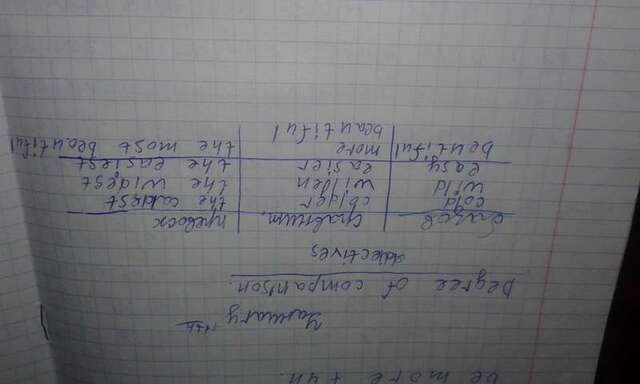 be more fun.
January 11th
Degree of comparison.
adjectives
базов сравнит. превосх
cold colder the coldest
wild wilden the widest
easy easier the easiest
beautiful more the most beautiful
beautiful